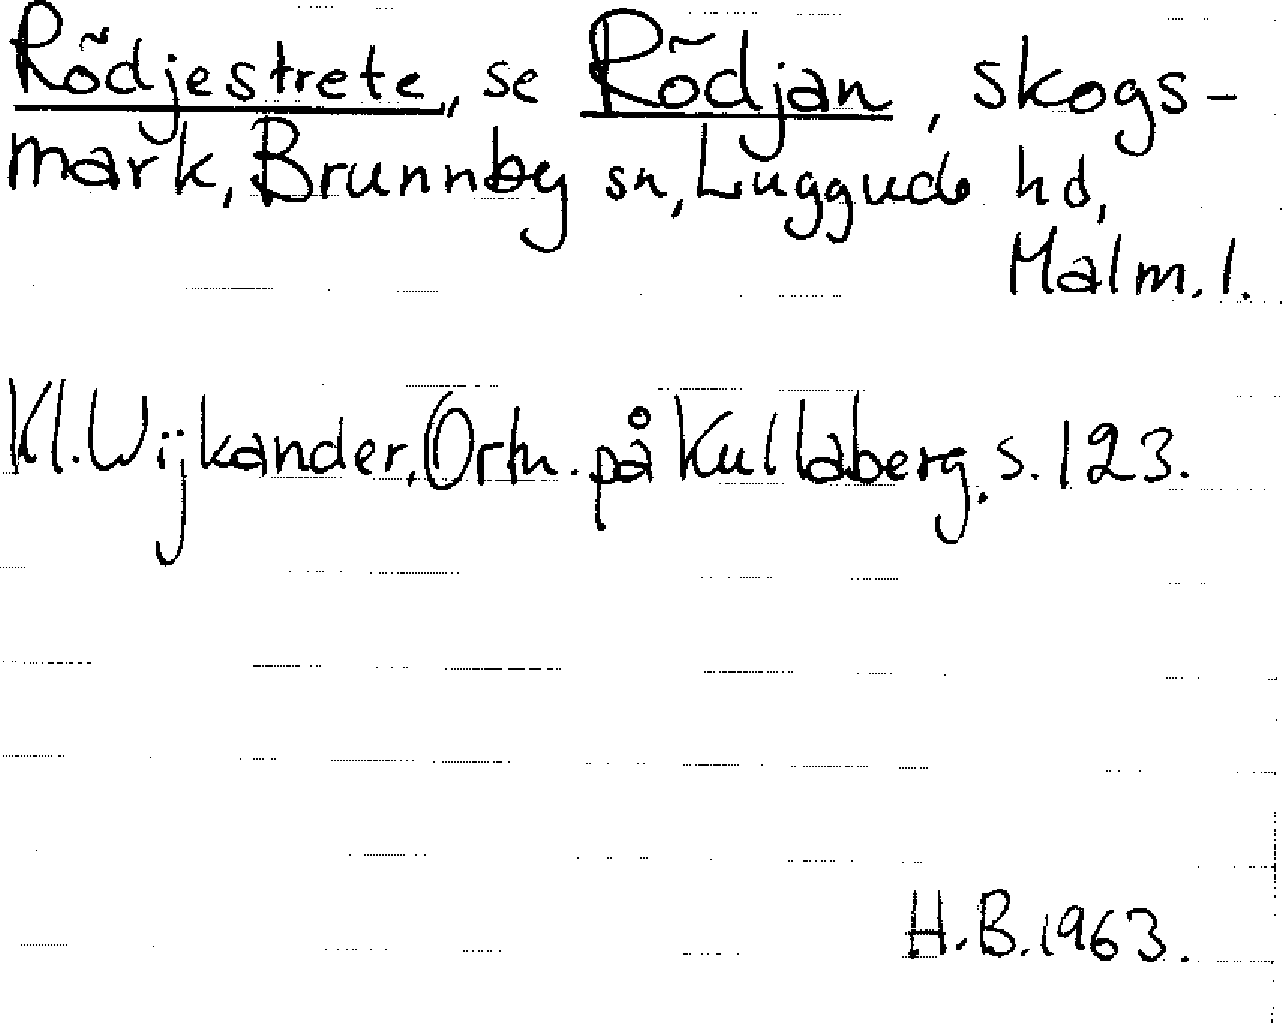 Rödjestrete, se Rödjan, skogs-
mark, Brunnby sn, Luggude hd,
Malm. l.
Kl. Wijkander, Ortn. på Kullaberg. s. 123.
H.B. 1963.